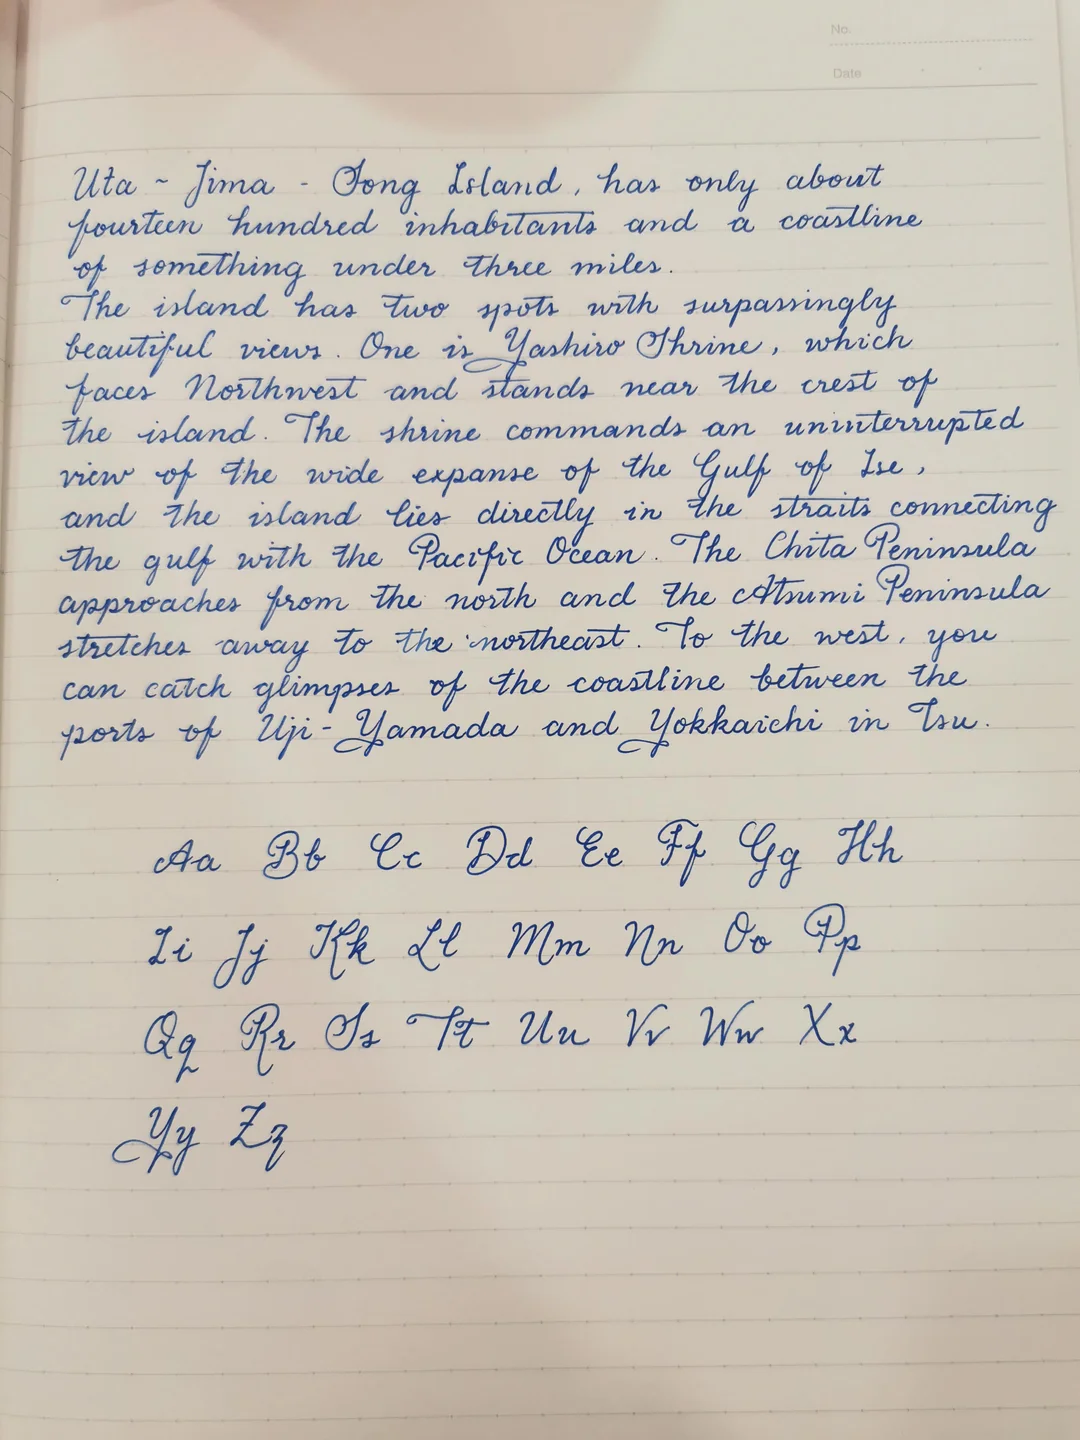 No.
Date
Uta ~ Jima - Song Island, has only about
fourteen hundred inhabitants and a coastline
of something under three miles.
The island has two spots with surpassingly
beautiful views. One is Yashiro Shrine, which
faces Northwest and stands near the crest of
the island. The shrine commands an uninterrupted
view of the wide expanse of the Gulf of Ise,
and the island lies directly in the straits connecting
the gulf with the Pacific Ocean. The Chita Peninsula
approaches from the north and the Atsumi Peninsula
stretches away to the northeast. To the west, you
can catch glimpses of the coastline between the
ports of Uji-Yamada and Yokkaichi in Tsu.
Aa Bb Cc Dd Ee Ff Gg Hh
Ii Jj Kk Ll Mm Nn Oo Pp
Qq Rr Ss Tt Uu Vv Ww Xx
Yy Zz